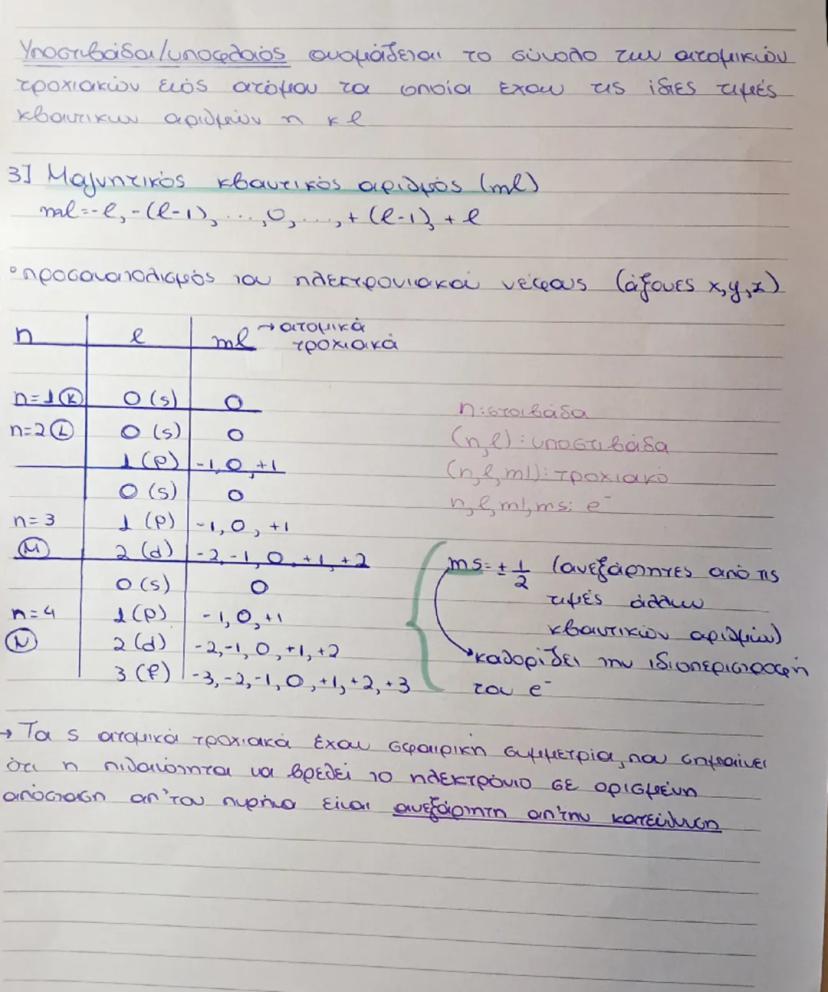 Υποστιβάδα/υποφλοιός ονομάζεται το σύνολο των ατομικών
τροχιακών ενός ατόμου τα οποία έχουν τις ίδιες τιμές
κβαντικων αριθμών n κ l
3] Μαγνητικός κβαντικός αριθμός (ml)
ml=-l, -(l-1), ..., 0, ..., +(l-1), +l
• προσανατολισμός του ηλεκτρονιακού νέφους (άξονες x,y,z)
n l ml → ατομικά
τροχιακά
n=1 (K) 0 (s) 0
n: στοιβάδα
n=2 (L) 0 (s) 0
(n,l): υποστιβάδα
1 (p) -1, 0, +1
(n,l,ml): τροχιακό
0 (s) 0
n,l,ml,ms: e⁻
n=3 1 (p) -1, 0, +1
(M) 2 (d) -2,-1, 0, +1, +2
ms=± 1/2 (ανεξάρτητες από τις
0 (s) 0
τιμές άλλων
n=4 1 (p) -1, 0, +1
κβαντικών αριθμών)
(N) 2 (d) -2,-1, 0, +1, +2
καθορίζει την ιδιοπεριστροφή
3 (f) -3, -2, -1, 0, +1, +2, +3
του e⁻
→ Τα s ατομικά τροχιακά έχουν σφαιρική συμμετρία, που σημαίνει
ότι η πιθανότητα να βρεθεί το ηλεκτρόνιο σε ορισμένη
απόσταση απ'τον πυρήνα είναι ανεξάρτητη απ'την κατεύθυνση